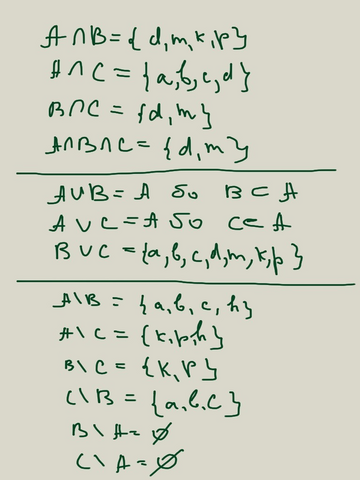 A∩B={d,m,k,p}
A∩C={a,b,c,d}
B∩C={d,m}
A∩B∩C={d,m}
A∪B=A бо B⊂A
A∪C=A бо C⊂A
B∪C={a,b,c,d,m,k,p}
A\B={a,b,c,h}
A\C={k,p,h}
B\C={k,p}
C\B={a,b,c}
B\A=∅
C\A=∅